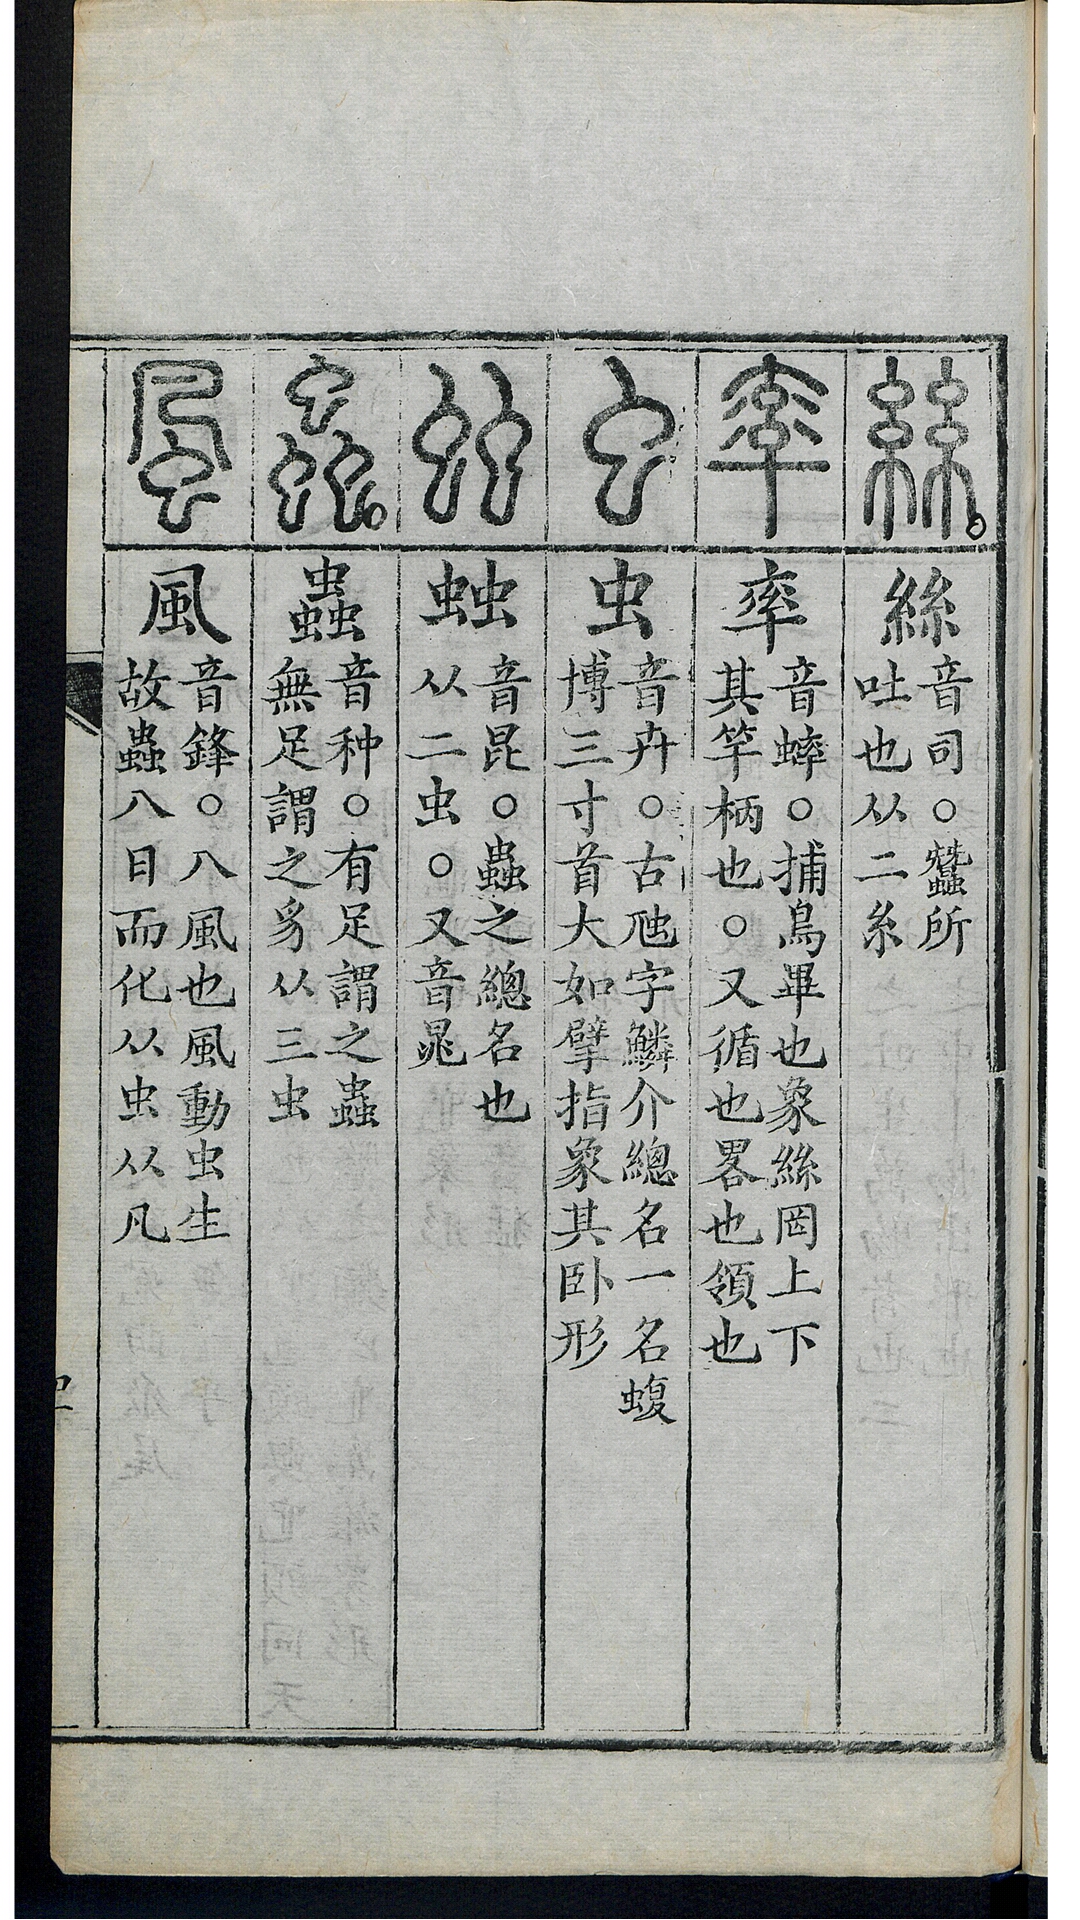 絲
音司○蠶所
吐也从二糸
率
音蟀○捕鳥畢也象絲罔上下
其竿柄也○又循也畧也領也
虫
音卉○古虺字鱗介總名一名蝮
博三寸首大如擘指象其卧形
䖵
音昆○蟲之總名也
从二虫○又音晁
蟲
音种○有足謂之蟲
無足謂之豸从三虫
風
音鋒○八風也風動虫生
故蟲八日而化从虫从凡